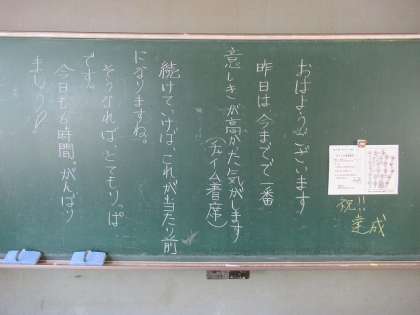 おはようございます
昨日は、今までで一番
意しきが高かた気がします
(チャイム着席)
続けていけば、これが当たり前
になりますね。
そうなれば、とてもりっぱ
です。
今日も6時間、がんばり
ましょう!
祝!!
達成